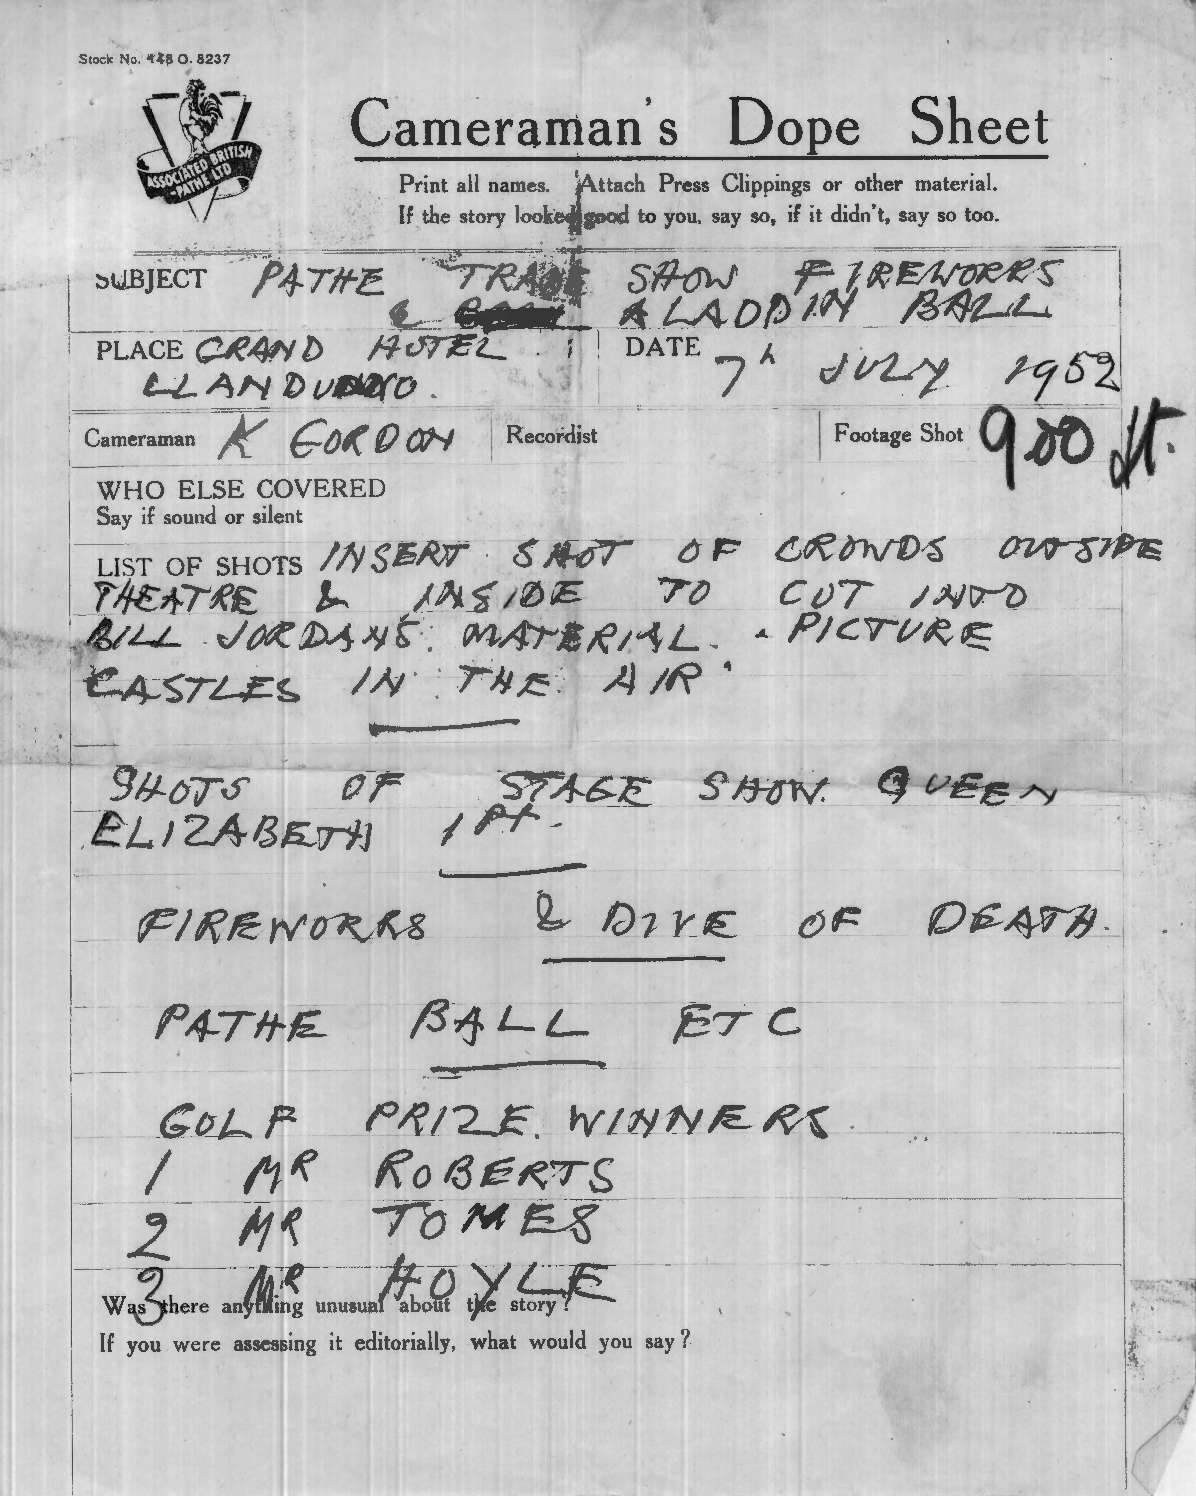 Stock No. 448 O. 8237
ASSOCIATED BRITISH
-PATHE LTD
Cameraman's Dope Sheet
Print all names. Attach Press Clippings or other material.
If the story looked good to you, say so, if it didn't, say so too.
SUBJECT PATHE TRADE SHOW FIREWORKS
& ALADDIN BALL
PLACE GRAND HOTEL
LLANDUDNO.
DATE 7h JULY 1952
Cameraman K GORDON Recordist Footage Shot 900 ft.
WHO ELSE COVERED
Say if sound or silent
LIST OF SHOTS INSERT SHOT OF CROWDS OUTSIDE
THEATRE & INSIDE TO CUT INTO
BILL JORDANS. MATERIAL. PICTURE
CASTLES IN THE AIR
SHOTS OF STAGE SHOW. QUEEN
ELIZABETH 1 Pt.
FIREWORKS & DIVE OF DEATH.
PATHE BALL ETC
GOLF PRIZE. WINNERS
1 MR ROBERTS
2 MR TOMES
3 MR HOYLE
Was there anything unusual about the story?
If you were assessing it editorially, what would you say?